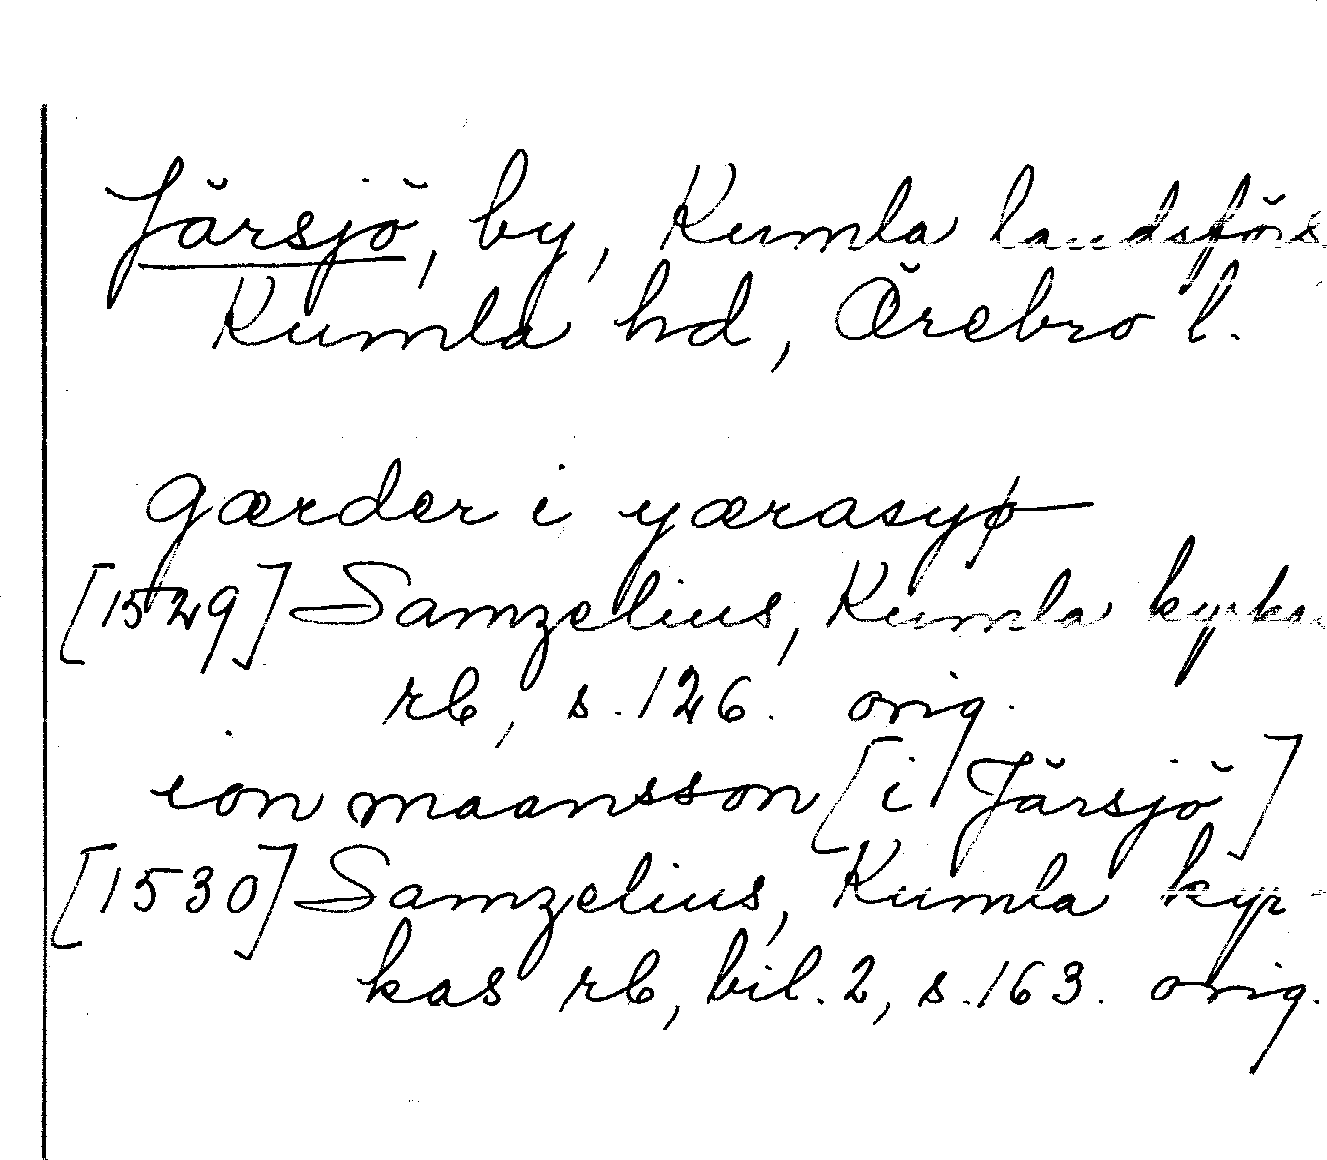 Järsjö, by, Kumla landsförs.
Kumla hd, Örebro l.
gærder i yærasyø
[1529] Samzelius, Kumla kyrkas
rb, s. 126. orig.
ion maansson [i Järsjö]
[1530] Samzelius, Kumla kyr-
kas rb, bil. 2, s. 163. orig.